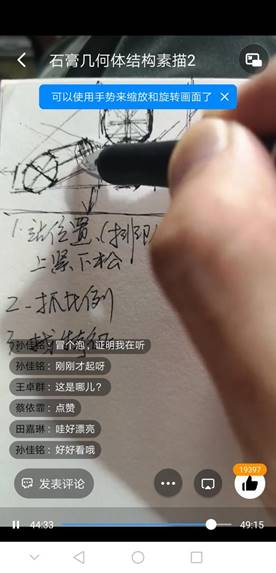 石膏几何体结构素描2
可以使用手势来缩放和旋转画面了
1.站位置、(排列
上紧下松
2.抓比例
孙佳铭：冒个泡，证明我在听
孙佳铭：刚刚才起呀
王卓群：这是哪儿？
蔡依霏：点赞
田嘉琳：哇好漂亮
孙佳铭：好好看哦
发表评论
19397
44:33
49:15